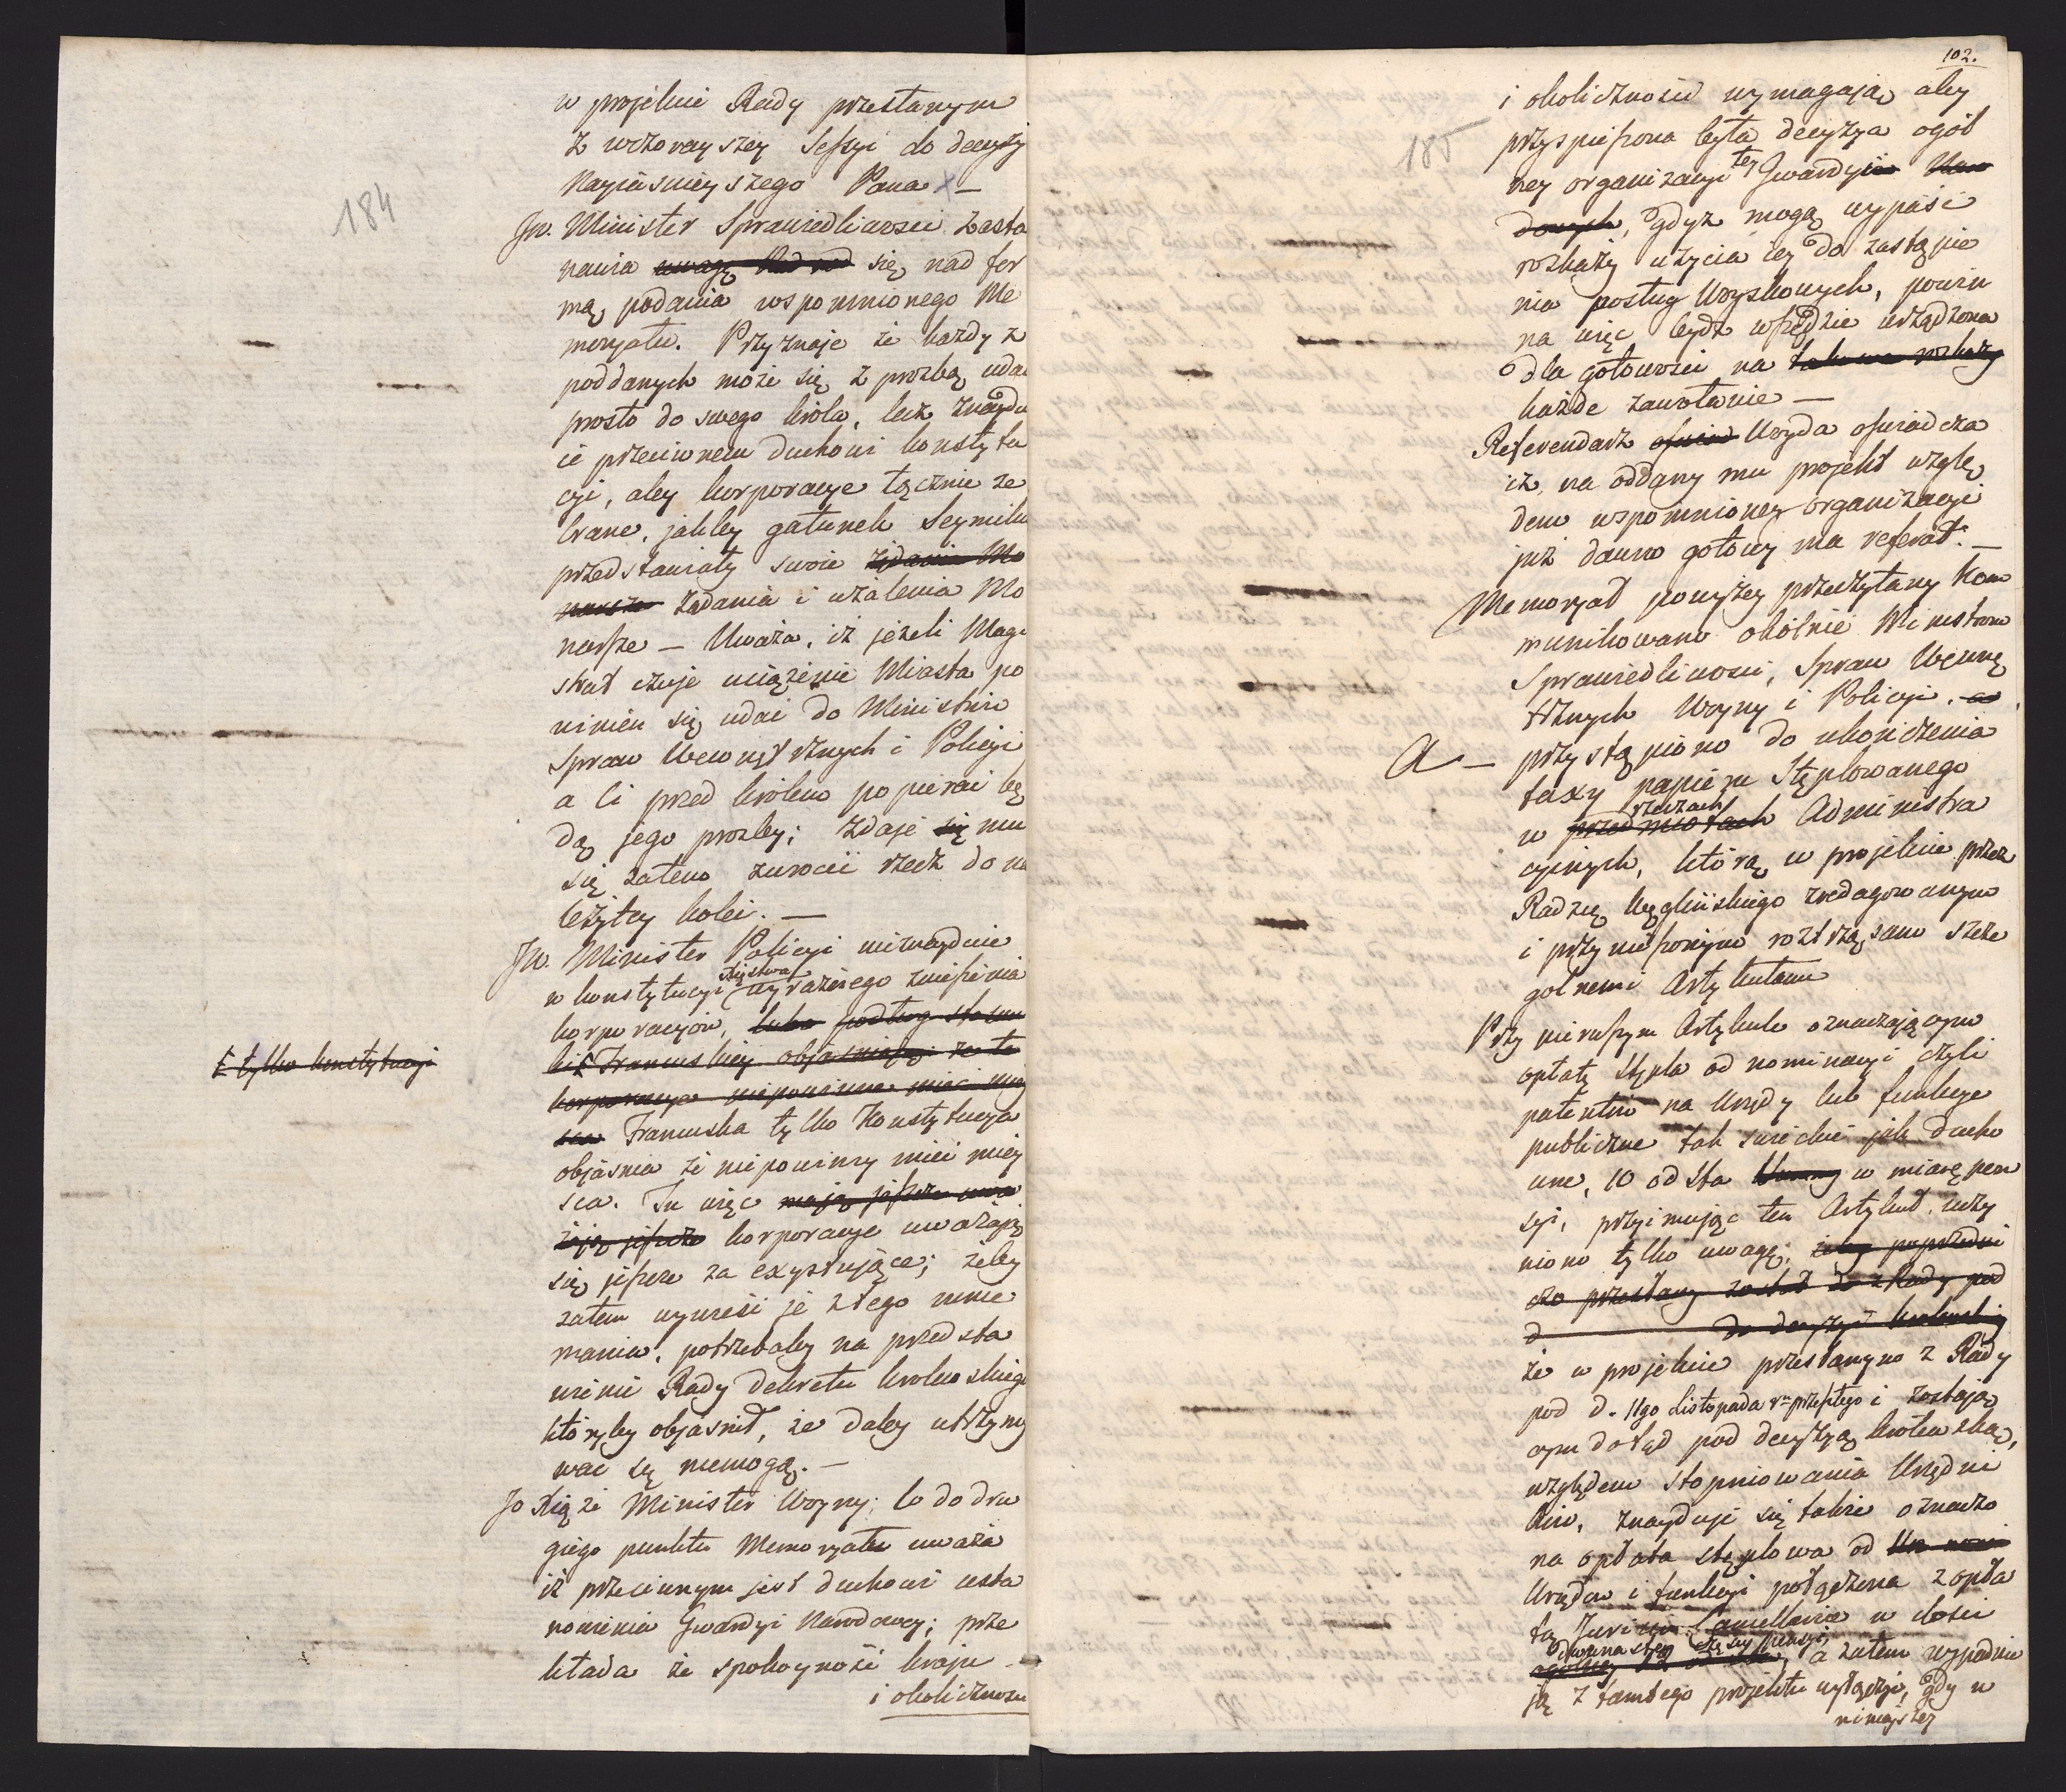 184
w projekcie Rady przesłanym
z wczorayszey Sessyi do decyzyi
Nayiasnieyszego Pana x —
Jw. Minister Sprawiedliwosci zasta
nawia uwagę Rad nad się nad for
mą podania wspomnionego Me
moryału. Przyznaje że każdy z
poddanych może się z prozbą udać
prosto do swego króla, lecz znaydu
ie przeciwnem duchowi konstytu
cyi, aby korporacye łącznie ze
brane, jakby gatunek Seymiku
przedstawiały swoie żądania Mo
narsze żądania i użalenia Mo
narsze — Uważa, iż jeżeli Magi
strat czuje uciążenie Miasta po
winien się udać do Ministrów
Spraw Wewnętrznych i Policyi
a Ci przed królem popierać bę
dą jego prozby; zdaje się mu
się zatem zwrócić rzecz do na
leżytey kolei. —
Jw. Minister Policyi nieznayduie
Xięstwa
w konstytucyi wyraźnego zniesienia
korporacyów, lubo podług stosun
ku Francuskiey objasniając że te
£ tylko konstytucyi
korporacye niepowinne mieć miey
sca Francuska tylko Konstytucya
objasnia że niepowinny mieć miey
sca. Tu więc mają jeszcze uwa
żają jeszcze korporacye uważają
się jeszcze za exystujące; żeby
zatem wywieść je z tego mnie
mania, potrzebaby na przedsta
wienie Rady dekretu krolewskiego
któryby objasnił, że daley utrzymy
wać się niemogą. —
Jo Xiąże Minister Woyny; co do dru
giego punktu Memoryału uważa
iż przeciwnym jest duchowi usta
nowienia Gwardyi Narodowey; prze
kłada że spokoyność kraju —
i okoliczności
102.
185
i okoliczności wymagają aby
przyspieszona była decyzya ogól
tey
ney organizacyi Gwardyi Naro
dowych, gdyż mogą wypaść
rozkazy użycia iey do zastąpie
nia posług Woyskowych, powin
na więc bydź wszędzie urządzona
dla gotowości na takowe rozkazy
każde zawołanie —
Referendarz oswiad Woyda oswiadcza
iż, na oddany mu projekt wzglę
dem wspomnioney organizacyi
już dawno gotowy ma referat. —
Memoryał powyżey przeczytany kom
munikowano okólnie Ministrom
Sprawiedliwości, Spraw Wewnę
trznych Woyny i Policyi. a
a — przystąpiono do ukończenia
taxy papieru Stęplowanego
rzeczach
w przedmiotach Administra
cyinych, którą w projekcie przez
Radzcę Węgleńskiego zredagowanym
i przyniesionym roztrząsano szcze
golnemi Artykułami
Przy pierwszym Artykule oznaczającym
opłatę stępla od nominacyi czyli
patentów na Urzędy lub funkcye
publiczne tak swieckie jak ducho
wne, 10 od sta w miarę pen
syi, przyimując ten Artykuł, uczy
niono tylko uwagę; żeby poprzedni
czo przesłany został do z Rady pod
d do decyzyi krolewskiey
że w projekcie przesłanym z Rady
pod d. 11go Listopada r. przeszłego i zostają
cym dotąd pod decyzyą krolewską,
względem stopniowania Urzędni
ków, znayduje się także oznaczo
na opłata stęplowa od
Urzędów i funkcyi połączona z opła
tą Jurium Cancellariae w ilości
części pensyi,
a zatem wypadnie
ją z tamtego projektu wyłączyć, gdy w
ninieyszey